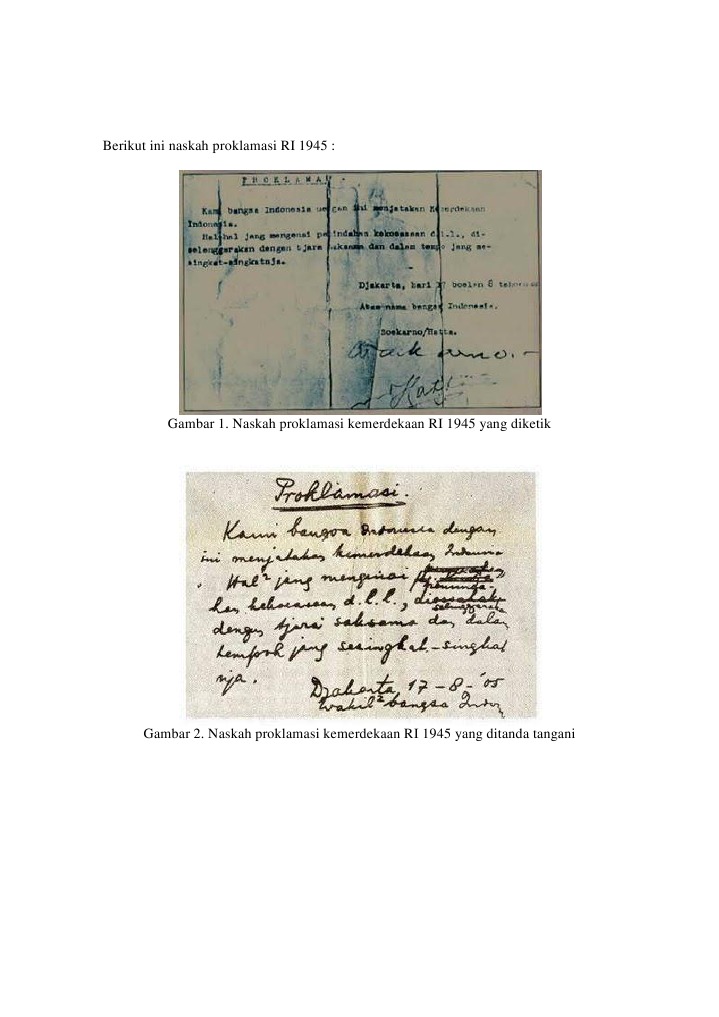 Berikut ini naskah proklamasi RI 1945 :
PROKLAMA
Kami bangsa Indonesia dengan ini menjatakan Kemerdekaan
Indonesia.
Hal-hal jang mengenai pemindahan kekoeasaan d.l.l., di-
selenggarakan dengan tjara saksama dan dalam tempo jang se-
singkat-singkatnja.
Djakarta, hari 17 boelan 8 tahoen
Atas nama bangsa Indonesia.
Soekarno/Hatta.
Gambar 1. Naskah proklamasi kemerdekaan RI 1945 yang diketik
Proklamasi.
Kami bangsa Indonesia dengan
ini menjatakan kemerdekaan Indonesia
Hal² jang mengenai
han kekoeasaan d.l.l.,
dengan tjara saksama dan dalam
tempoh jang sesingkat-singkat
nja.
Djakarta, 17-8-'05
Wakil² bangsa Indon
Gambar 2. Naskah proklamasi kemerdekaan RI 1945 yang ditanda tangani